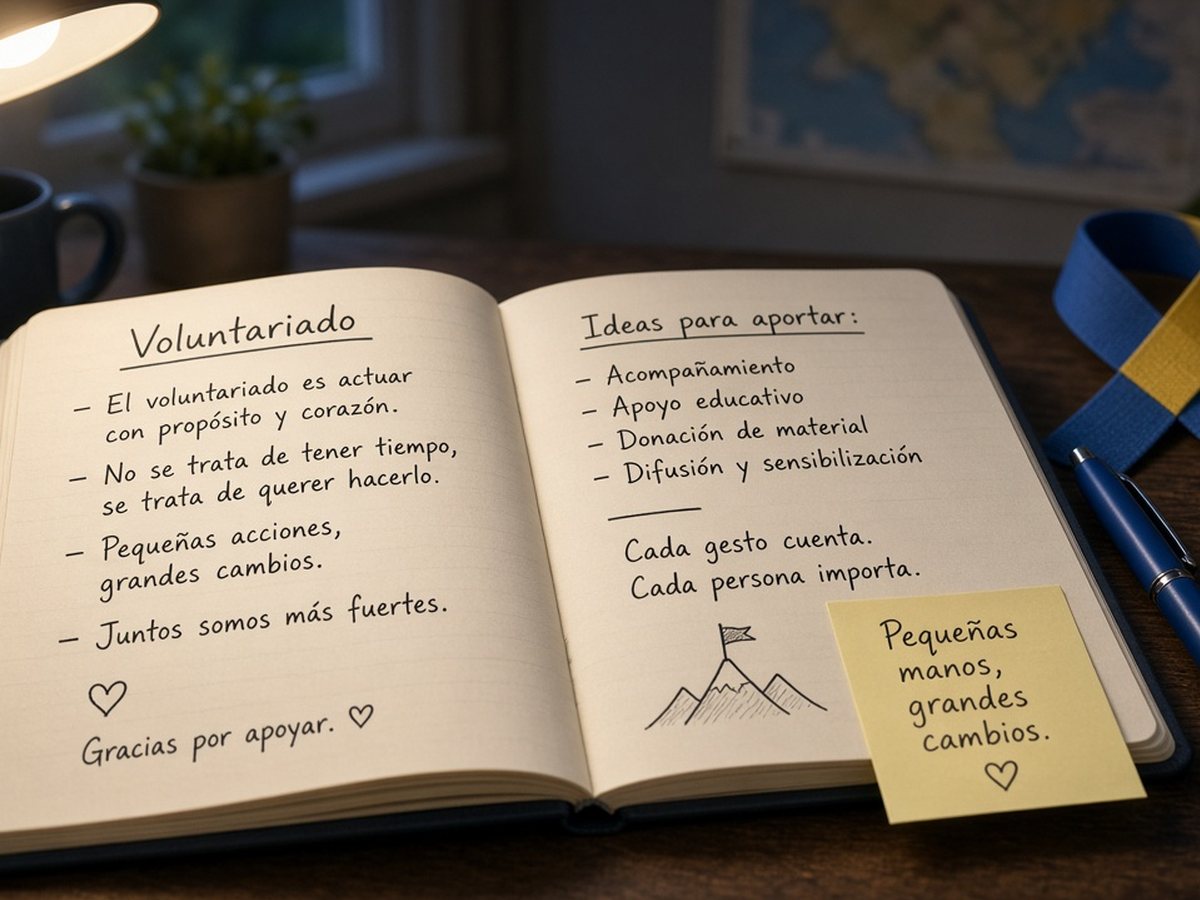 Voluntariado
– El voluntariado es actuar
con propósito y corazón.
– No se trata de tener tiempo,
se trata de querer hacerlo.
– Pequeñas acciones,
grandes cambios.
– Juntos somos más fuertes.
Gracias por apoyar.
Ideas para aportar:
– Acompañamiento
– Apoyo educativo
– Donación de material
– Difusión y sensibilización
Cada gesto cuenta.
Cada persona importa.
Pequeñas
manos,
grandes
cambios.